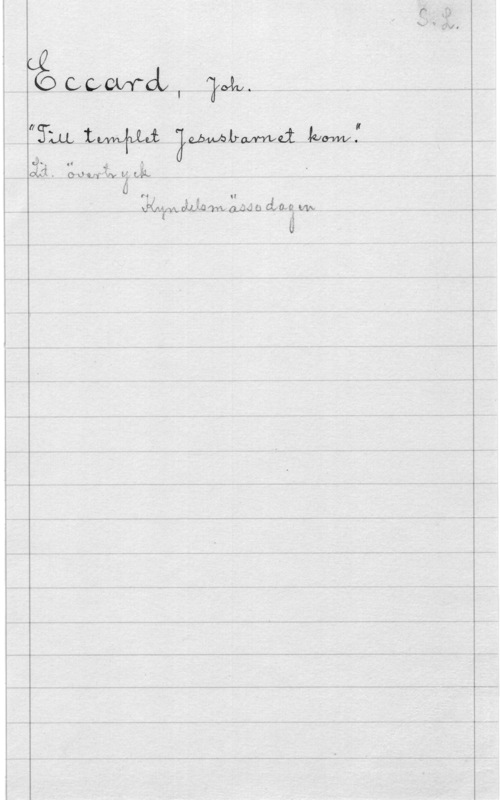 S. L.
Eccard, Joh.
"Till templet Jesusbarnet kom."
Lit. övertryck
Kyndelsmässodagen